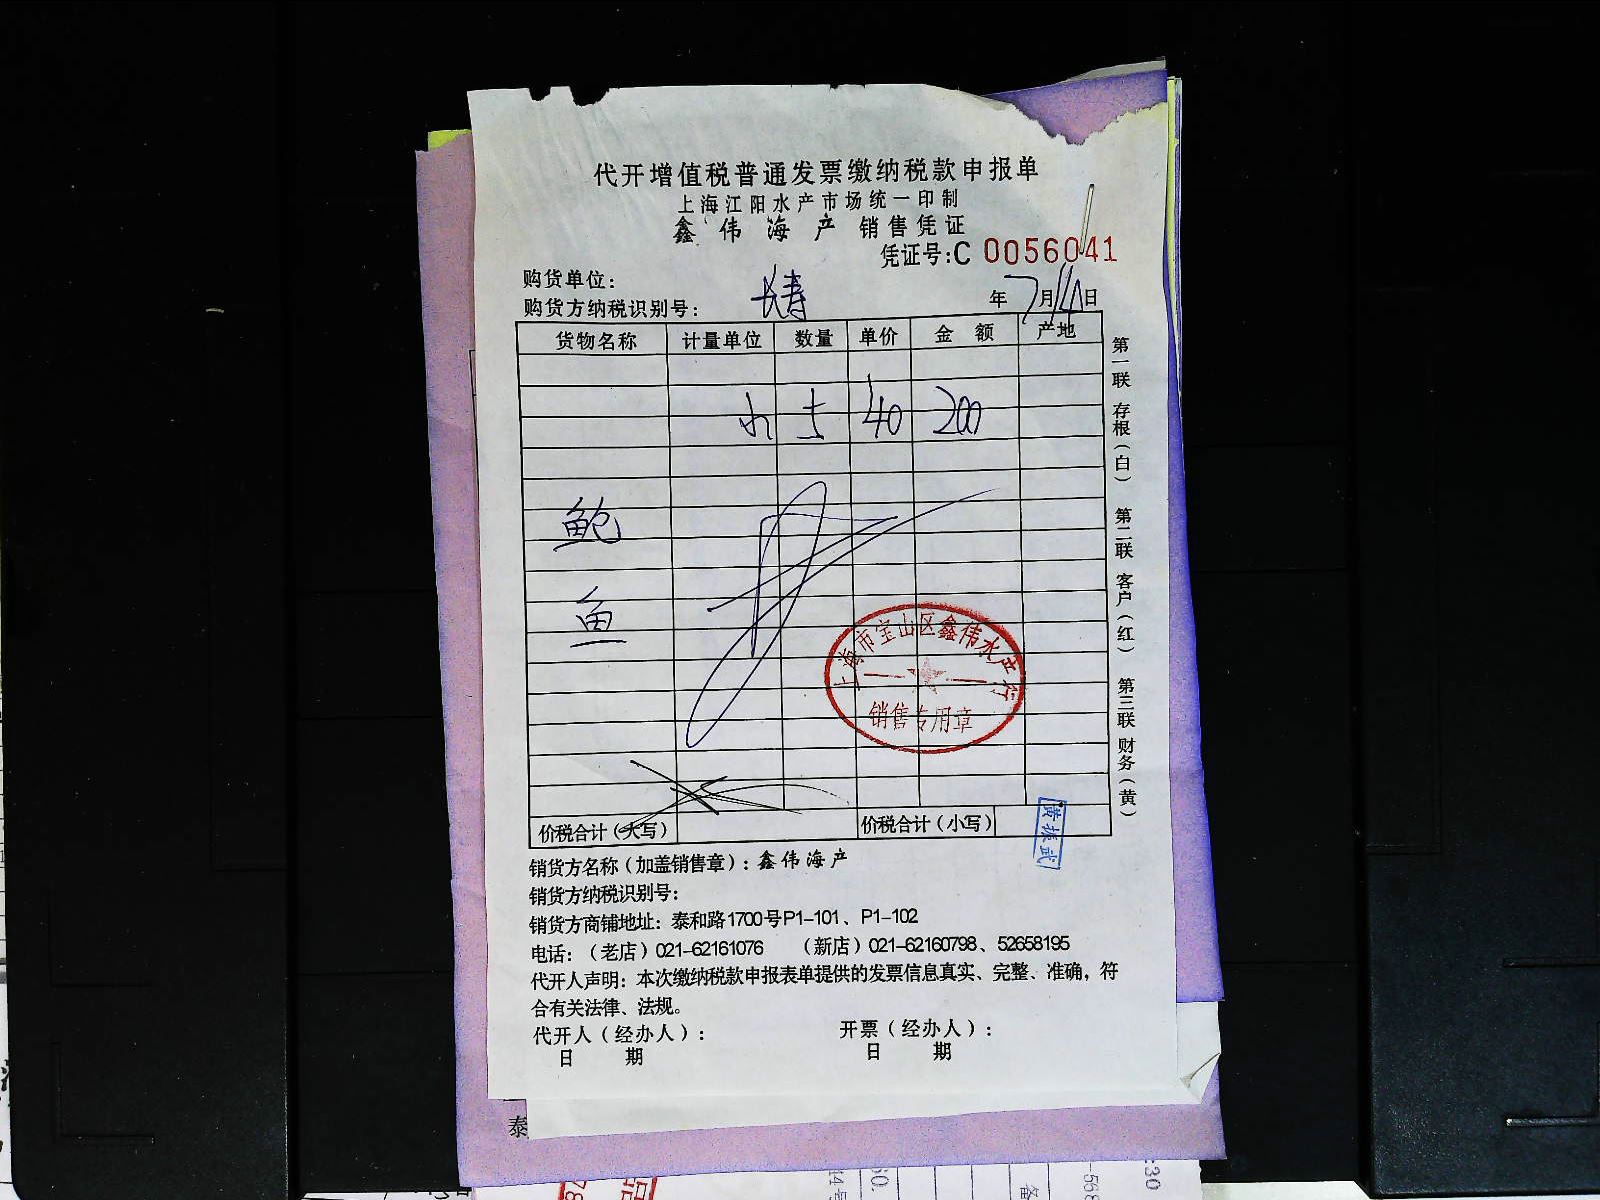 代开增值税普通发票缴纳税款申报单
上海江阳水产市场统一印制
鑫伟海产 销售凭证
凭证号:C 0056041
购货单位:
购货方纳税识别号: 长寿 年7月14日
货物名称 计量单位 数量 单价 金额 产地
40 200
鲍
鱼
上海市宝山区鑫伟水产行
销售专用章
价税合计(大写) 价税合计(小写)
黄振武
第一联 存根(白) 第二联 客户(红) 第三联 财务(黄)
销货方名称(加盖销售章):鑫伟海产
销货方纳税识别号:
销货方商铺地址:泰和路1700号P1-101、P1-102
电话:(老店)021-62161076 (新店)021-62160798、52658195
代开人声明:本次缴纳税款申报表单提供的发票信息真实、完整、准确,符
合有关法律、法规。
代开人(经办人): 开票(经办人):
日期 日期
泰